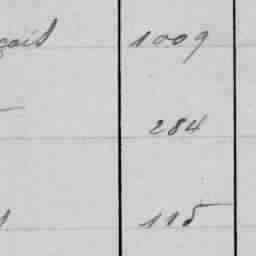 çais 1009
284
115